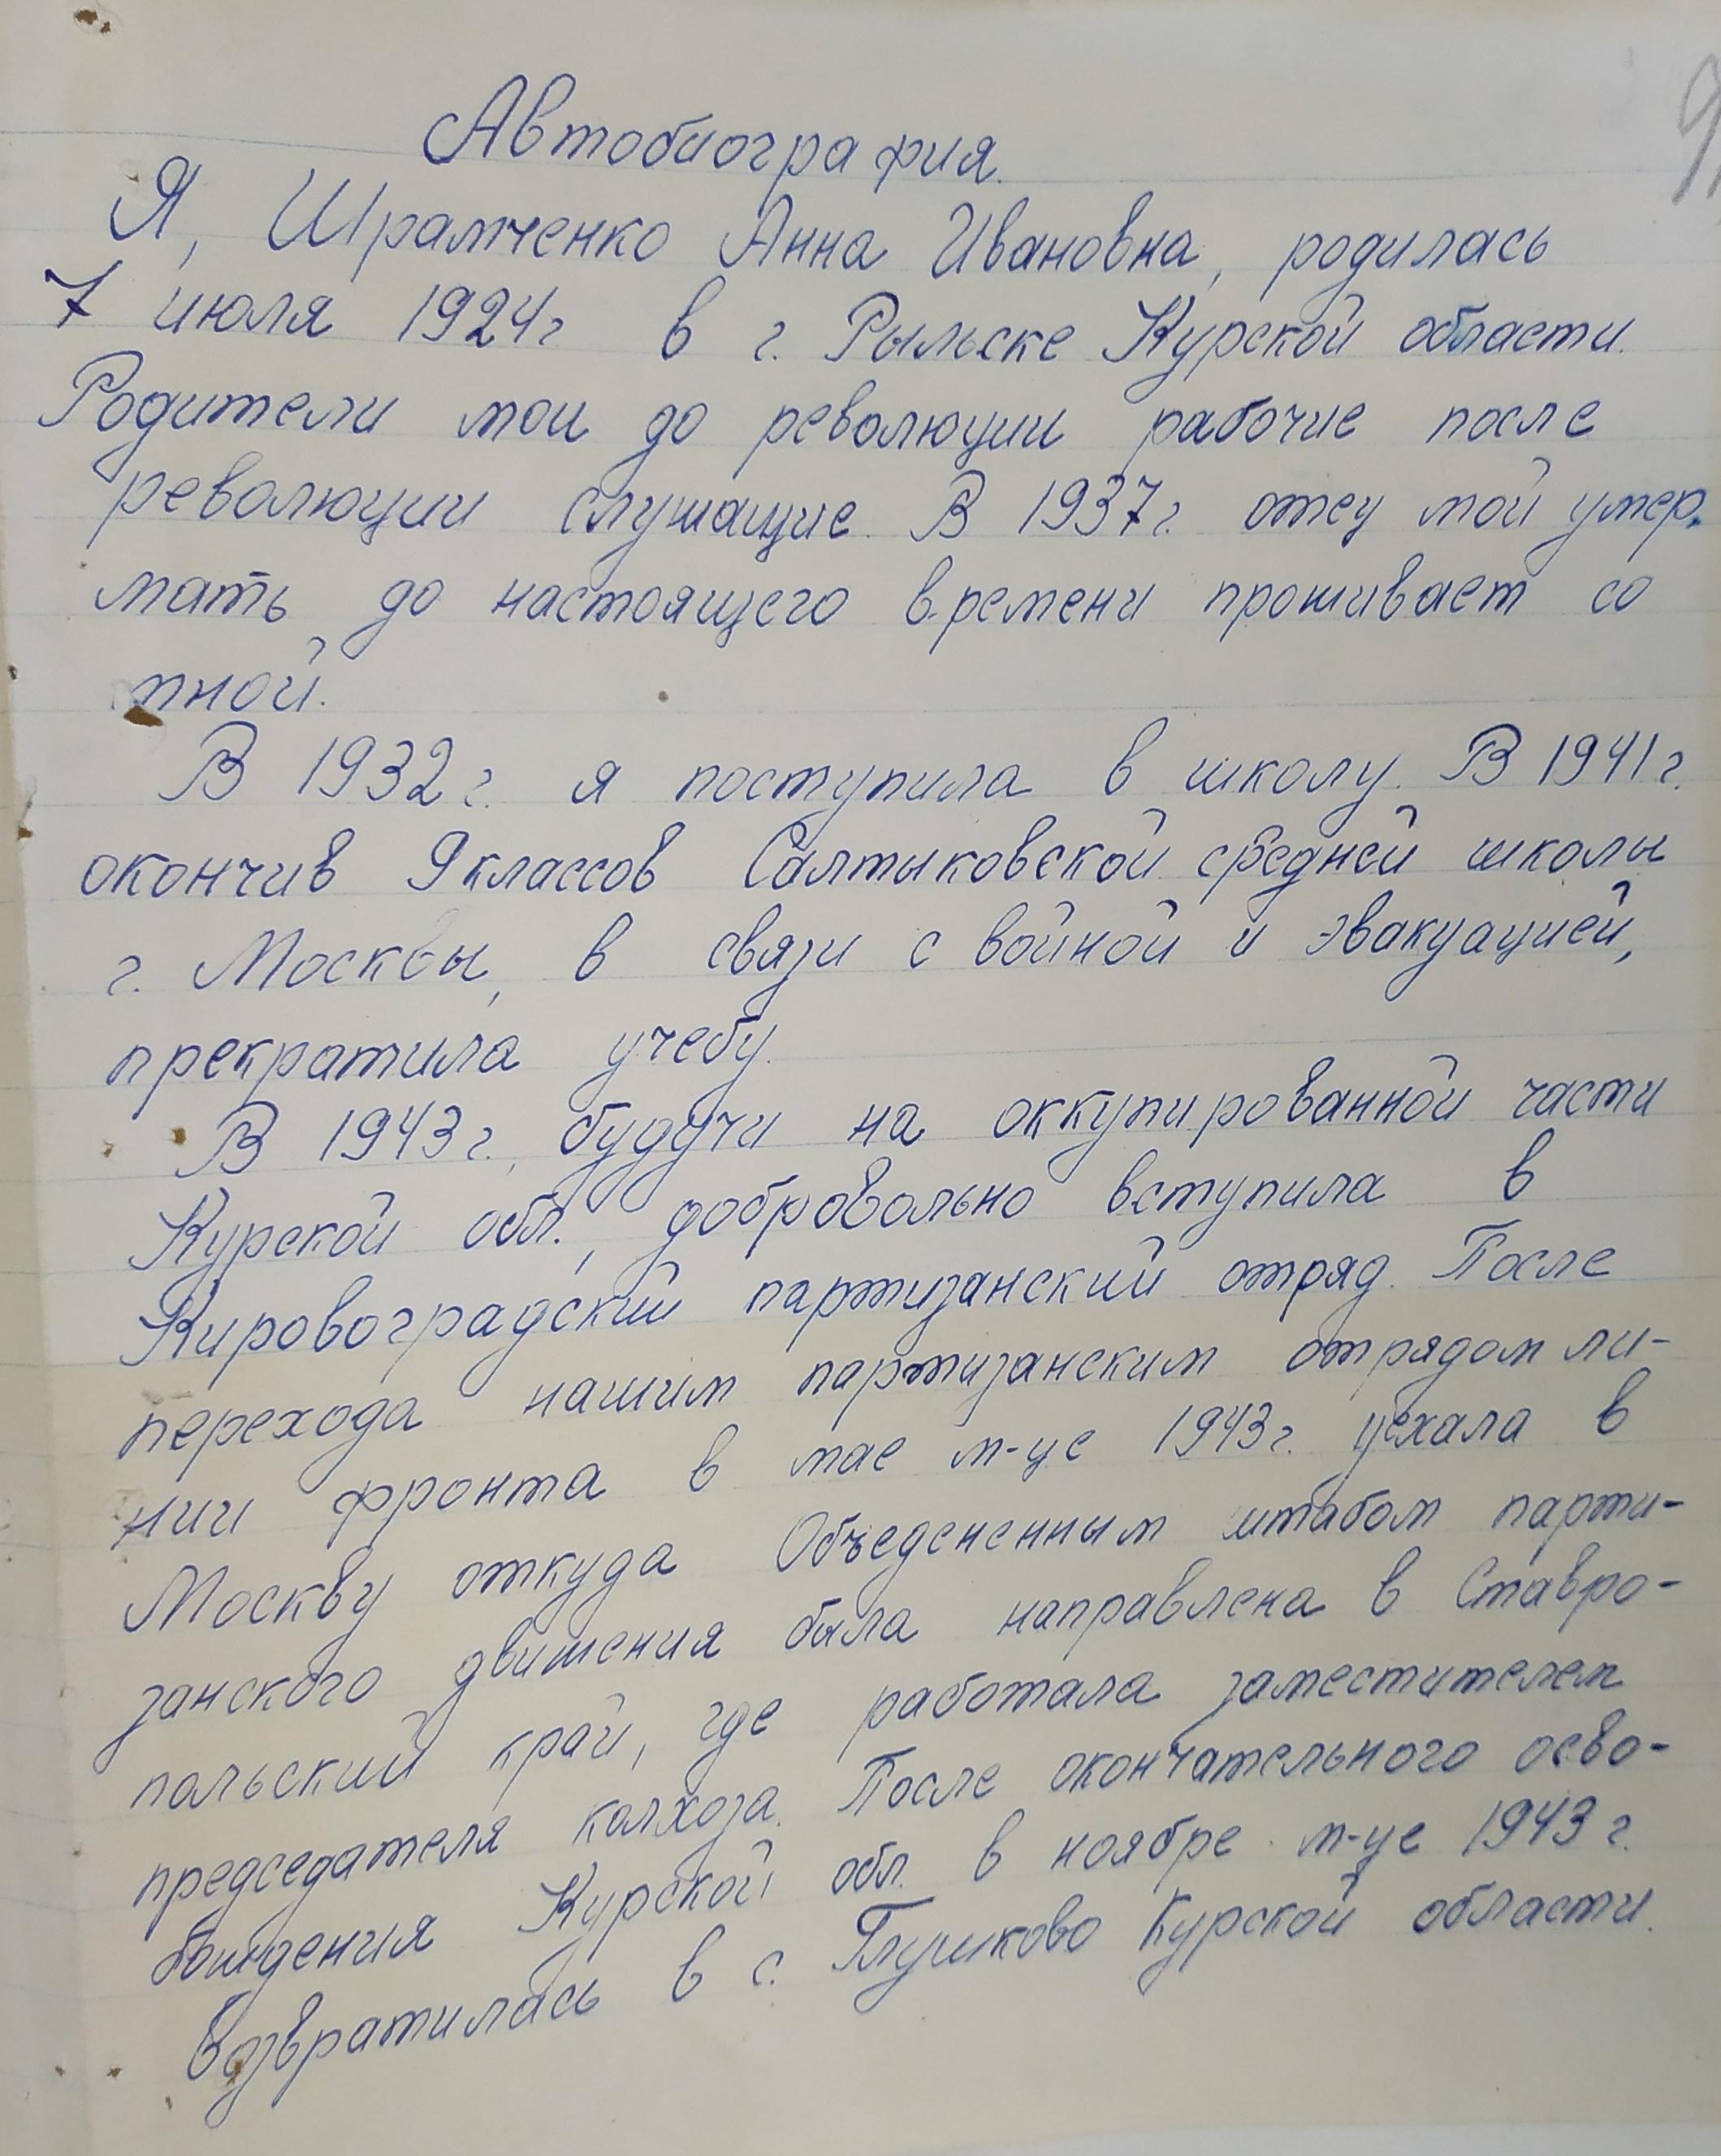 Автобиография.
Я, Шрамченко Анна Ивановна, родилась
7 июля 1924г в г. Рыльске Курской области.
Родители мои до революции рабочие после
революции служащие. В 1937г. отец мой умер.
мать до настоящего времени проживает со
мной.
В 1932г. я поступила в школу. В 1941г.
окончив 9 классов Салтыковской средней школы
г. Москвы, в связи с войной и эвакуацией,
прекратила учебу.
В 1943г., будучи на оккупированной части
Курской обл., добровольно вступила в
Кировоградский партизанский отряд. После
перехода нашим партизанским отрядом ли-
нии фронта в мае м-це 1943г. уехала в
Москву откуда Объедененным штабом парти-
занского движения была направлена в Ставро-
польский край, где работала заместителем
председателя колхоза. После окончательного осво-
бождения Курской обл. в ноябре м-це 1943г.
возвратилась в с. Глушково Курской области.